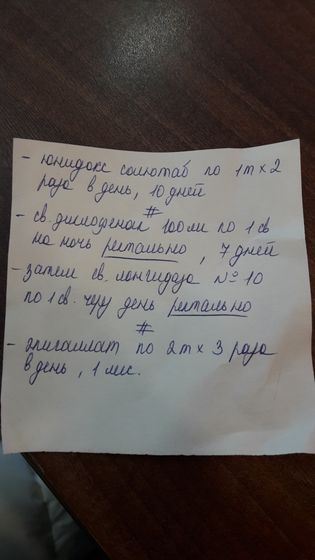 - юнидокс солютаб по 1т х 2
раза в день, 10 дней
#
- св. диклофенак 100мг по 1 св
на ночь ректально, 7 дней
- затем св. лонгидаза №10
по 1 св. через день ректально
#
- эпигаллат по 2т х 3 раза
в день, 1 мес.